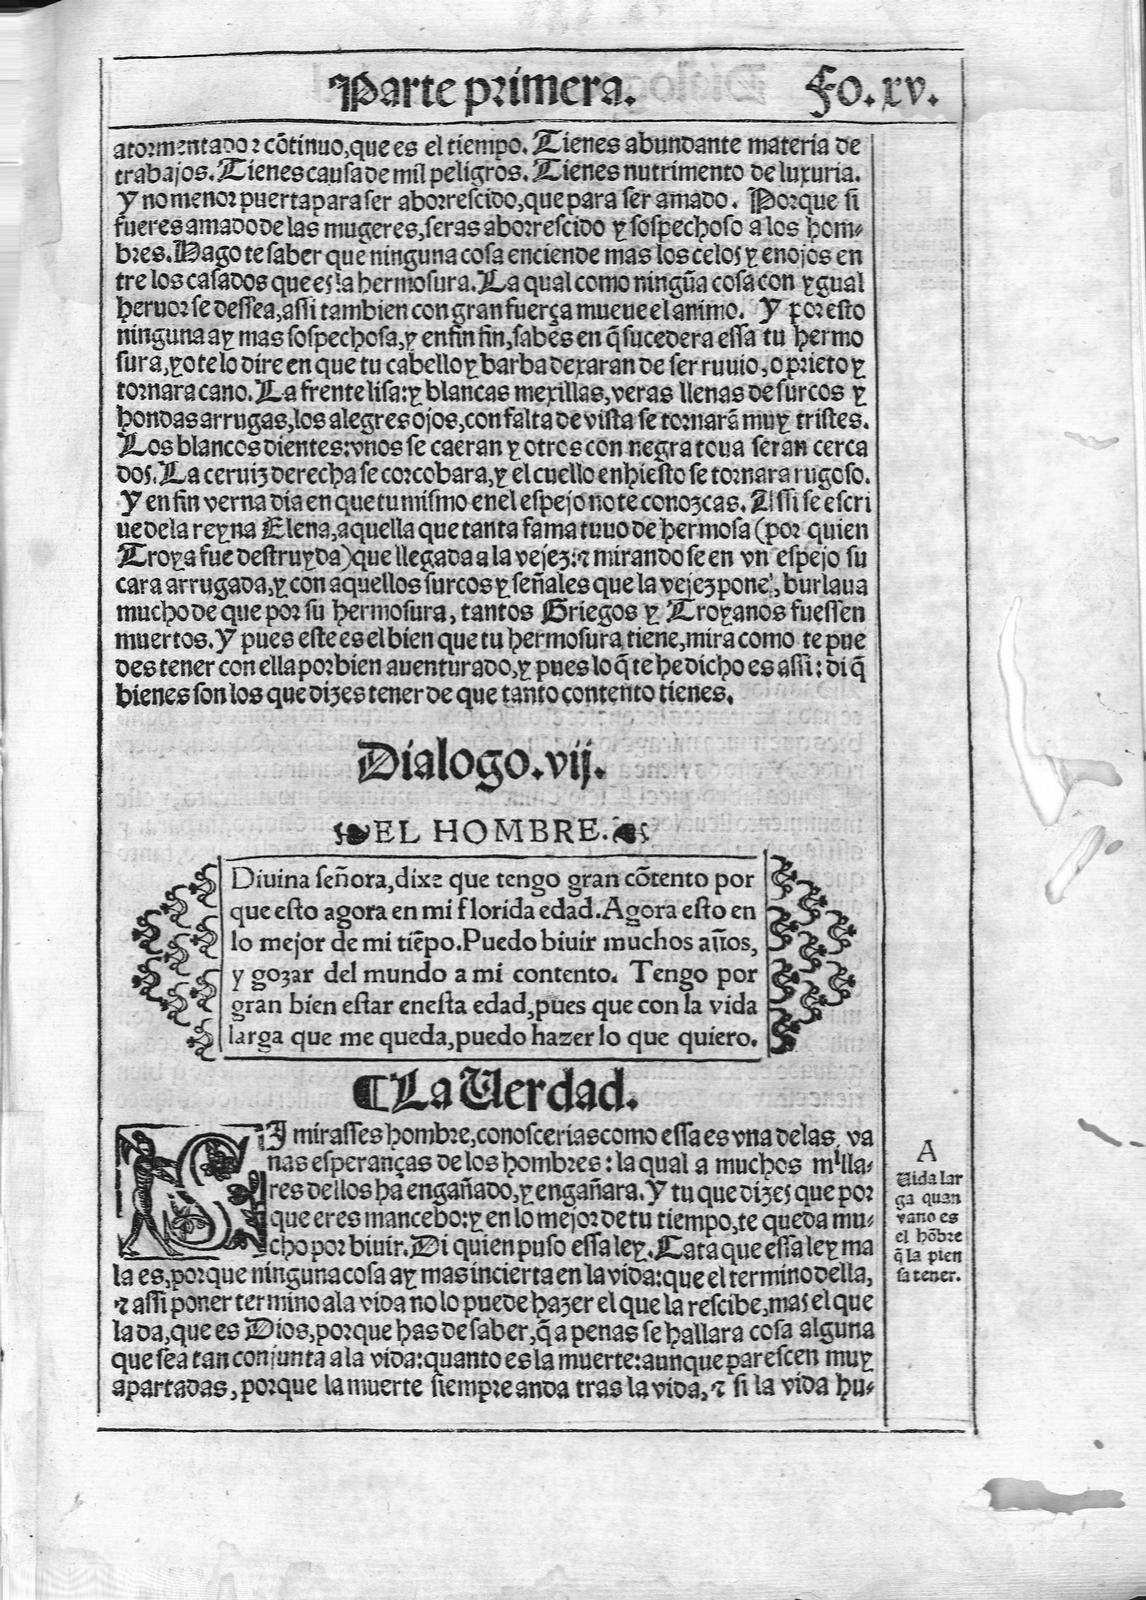 Parte primera. Fo. xv.
atormentador cõtinuo, que es el tiempo. Tienes abundante materia de
trabajos. Tienes causa de mil peligros. Tienes nutrimento de luxuria.
Y no menor puerta para ser aborrescido, que para ser amado. Porque si
fueres amado de las mugeres, seras aborrescido y sospechoso a los hom-
bres. Hago te saber que ninguna cosa enciende mas los celos y enojos en
tre los casados que es la hermosura. La qual como ningũa cosa con ygual
heruor se dessea, assi tambien con gran fuerça mueue el animo. Y por esto
ninguna ay mas sospechosa, y en fin fin, sabes en q̃ sucedera essa tu hermo
sura, yo te lo dire en que tu cabello y barba dexaran de ser ruuio, o prieto y
tornara cano. La frente lisa: y blancas mexillas, veras llenas de surcos y
hondas arrugas, los alegres ojos, con falta de vista se tornarã muy tristes.
Los blancos dientes: vnos se caeran y otros con negra toua seran cerca
dos. La ceruiz derecha se corcobara, y el cuello enhiesto se tornara rugoso.
Y en fin verna dia en que tu mismo en el espejo no te conozcas. Assi se escri
ue de la reyna Elena, aquella que tanta fama tuuo de hermosa (por quien
Troya fue destruyda) que llegada a la vejez: ⁊ mirando se en vn espejo su
cara arrugada, y con aquellos surcos y señales que la vejez pone, burlaua
mucho de que por su hermosura, tantos Griegos y Troyanos fuessen
muertos. Y pues este es el bien que tu hermosura tiene, mira como te pue
des tener con ella por bien auenturado, y pues lo q̃ te he dicho es assi: di q̃
bienes son los que dizes tener de que tanto contento tienes.
Dialogo. vij.
EL HOMBRE.
Diuina señora, dixe que tengo gran cõtento por
que esto agora en mi florida edad. Agora esto en
lo mejor de mi tiẽpo. Puedo biuir muchos años,
y gozar del mundo a mi contento. Tengo por
gran bien estar en esta edad, pues que con la vida
larga que me queda, puedo hazer lo que quiero.
¶ La Uerdad.
SI mirasses hombre, conoscerias como essa es vna de las va
nas esperanças de los hombres: la qual a muchos milla-
res dellos ha engañado, y engañara. Y tu que dizes que por
que eres mancebo: y en lo mejor de tu tiempo, te queda mu-
cho por biuir. Di quien puso essa ley. Cata que essa ley ma
la es, porque ninguna cosa ay mas incierta en la vida: que el termino della,
⁊ assi poner termino a la vida no lo puede hazer el que la rescibe, mas el que
la da, que es Dios, porque has de saber, q̃ a penas se hallara cosa alguna
que sea tan conjunta a la vida: quanto es la muerte: aunque parescen muy
apartadas, porque la muerte siempre anda tras la vida, ⁊ si la vida hu-
A
Uida lar
ga quan
vano es
el hõbre
q̃ la pien
sa tener.